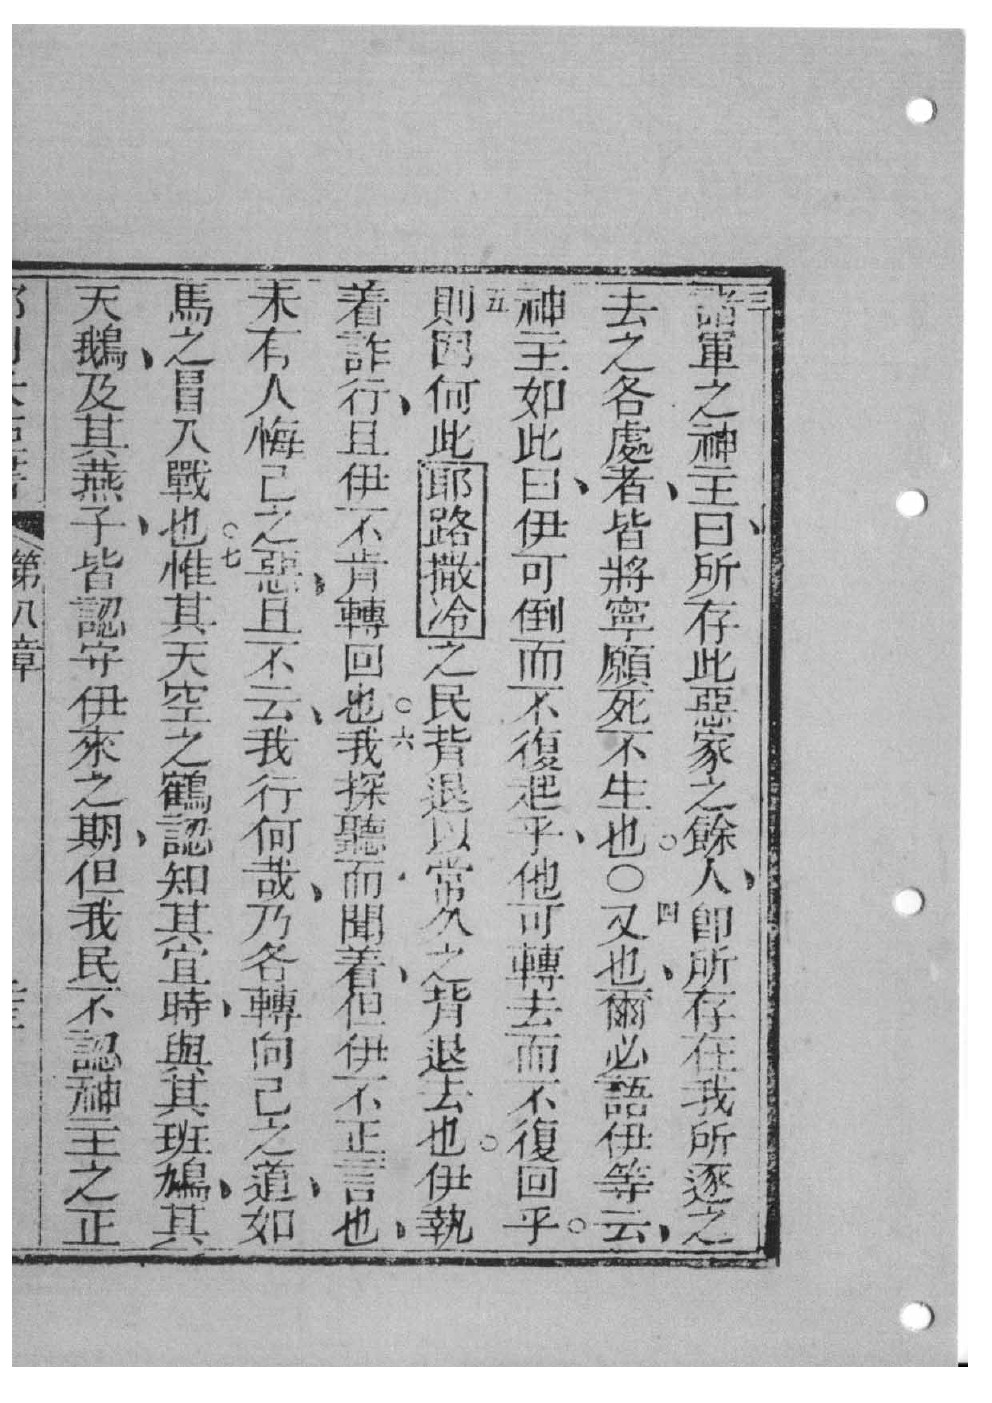 三諸軍之神主曰、所存此惡家之餘人、卽所存在我所逐之
去之各處者、皆將寧願死不生也。○四又也、爾必語伊等云、
神主如此曰、伊可倒而不復起乎、他可轉去而不復回乎。
五則因何此耶路撒冷之民背退以常久之背退去也。伊執
着詐行、且伊不肯轉回也。六我探聽而聞着、但伊不正言也、
未有人悔己之惡、且不云、我行何哉、乃各轉向己之道、如
馬之冒入戰也。七惟其天空之鶴認知其宜時、與其班鳩、其
天鵝、及其燕子、皆認守伊來之期、但我民不認神主之正
第八章